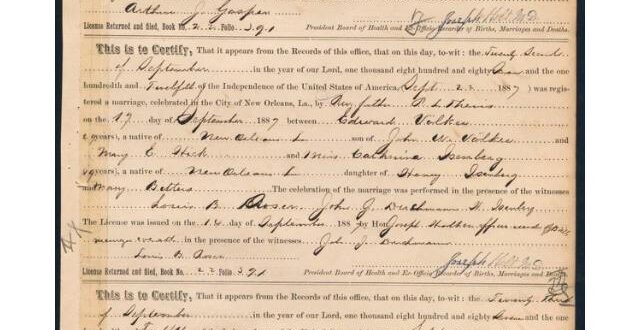 Arthur J. Gasper Joseph Holt MD
License Returned and filed, Book No. 22 Folio 391 President Board of Health and Ex-Officio Recorder of Births, Marriages and Deaths.
This is to Certify, That it appears from the Records of this office, that on this day, to-wit: the Twenty Second
of September in the year of our Lord, one thousand eight hundred and eighty Seven and the one
hundredth and Twelfth of the Independence of the United States of America, Sept 22 1887 was regis-
tered a marriage, celebrated in the City of New Orleans, La., by Rev father
the 17 day of September 1887 between Edward Volker
years), a native of New Orleans La son of John W. Volker
Mary C. and Miss Catharina Isenberg
years), a native of New Orleans La daughter of Henry Isenberg
and Mary Betters The celebration of the marriage was performed in the presence of the witnesses
Louis B. John J. H. Isenberg
The License was issued on the 14 day of September 1887 by Hon Joseph
in the presence of the witnesses Joh J.
Louis B. Joseph Holt MD
License Returned and filed, Book No. 22 Folio 391 President Board of Health and Ex-Officio Recorder of Births, Marriages and Deaths.
This is to Certify, That it appears from the Records of this office, that on this day, to-wit: the Twenty third
of September in the year of our Lord, one thousand eight hundred and eighty Seven and the one